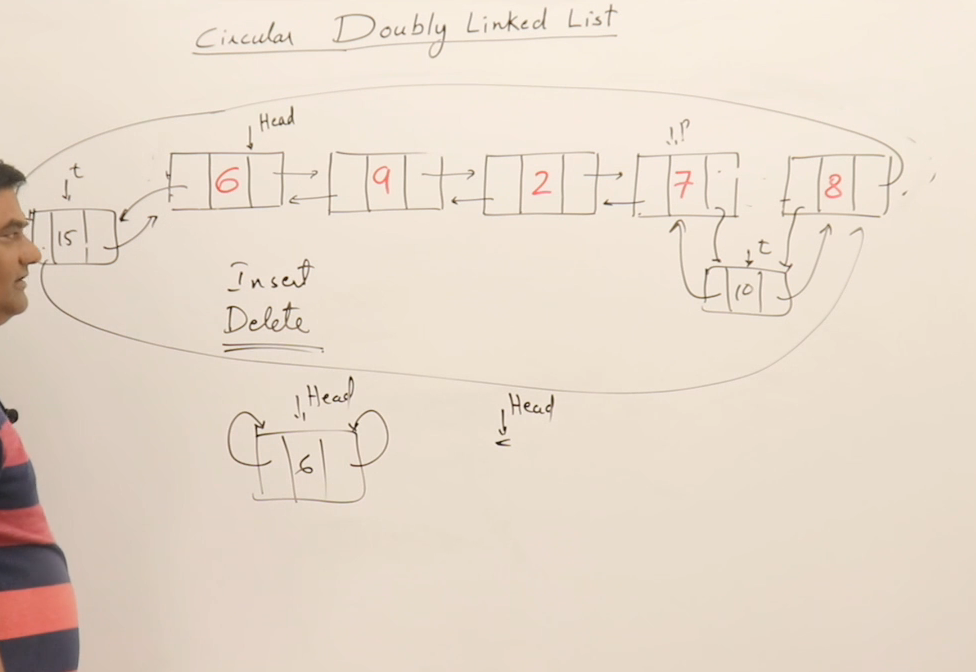 Circular Doubly Linked List
Head
P
t
6 9 2 7 8
15
t
10
Insert
Delete
Head
Head
6